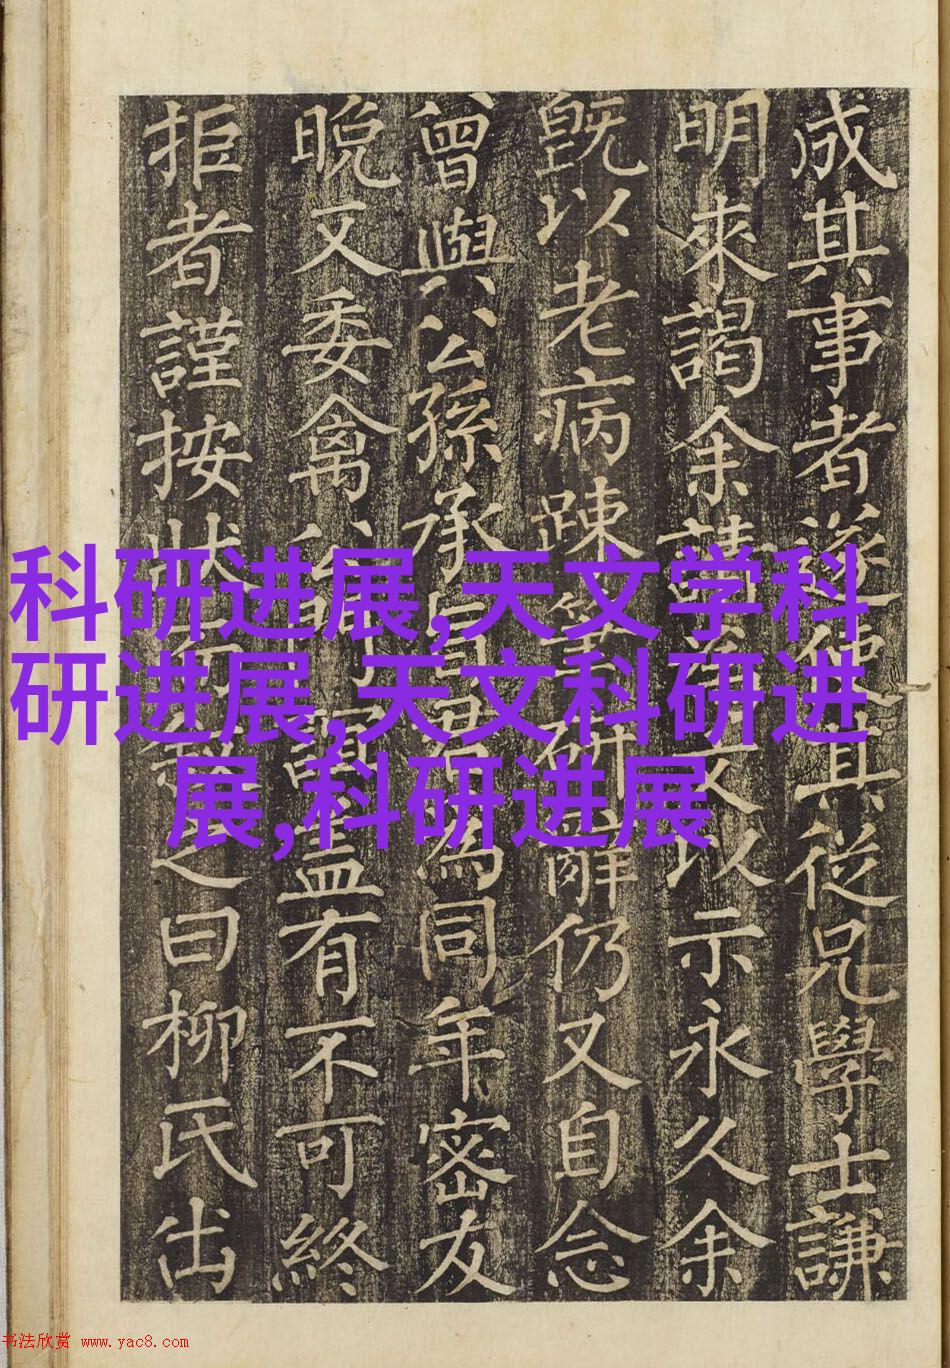 成其事者遂使其從兄學士謙
明來謁余請文以示永久余
既以老病踈筆研辭仍又自念
曾與公孫承旨君為同年密友
晚又委禽盖有不可終
拒者謹按狀之曰柳氏出
科研进展,天文学科
研进展,天文科研进
展,科研进展
书法欣赏 www.yac8.com